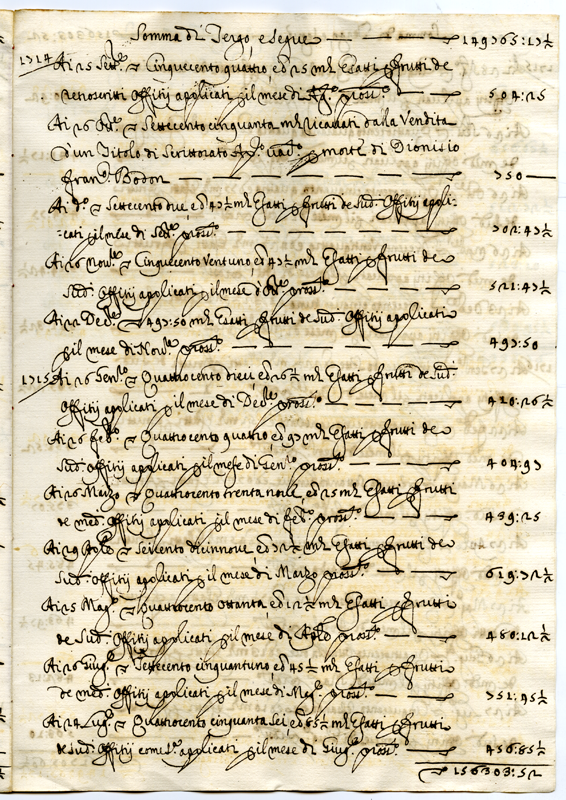 Somma di Tergo e segue 149365:17½
1714 Ai 25 Sett.e Cinquecento quattro ed 25 m.ta Esatti p frutti de
retroscritti Offitij applicati p il mese di Ag.o pross.o 504:25
Ai 26 Ott.e Settecento cinquanta m.ta ricavati dalla Vendita
d'un Titolo di Scrittorato Ap.o vac.o p morte di Dionisio
Fran.o Bodon 750
Ai d.o Settecento due ed 47½ m.ta Esatti p frutti de Sud.i Offitij appli-
cati p il mese di Sett.e pross.o 702:47½
Ai 26 Nov.e Cinquecento Ventuno ed 47½ m.ta Esatti p frutti de
Sud.i Offitij applicati p il mese d'Ott.e pross.o 521:47½
Ai 22 Dec.e 497:50 m.ta Esatti p frutti de Sud.i Offitij applicati
p il mese di Nov.e pross.o 497:50
1715 Ai 26 Genn.o Quattrocento dieci ed 26½ m.ta Esatti p frutti de Sud.i
Offitij applicati p il mese di Dec.e pross.o 410:26½
Ai 26 Feb.o Quattrocento quattro ed 97 m.ta Esatti p frutti de
Sud.i Offitij applicati p il mese di Genn.o pross.o 404:97
Ai 26 Marzo Quattrocento trenta nove, ed 25 m.ta Esatti p frutti
de med.i Offitij applicati p il mese di Feb.o pross.o 439:25
Ai 29 Aple Seicento diecinnove ed 72½ m.ta Esatti p frutti de
Sud.i Offitij applicati p il mese di Marzo pross.o 619:72½
Ai 25 Mag.o Quattrocento Ottanta ed 12½ m.ta Esatti p frutti
de Sud.i Offitij applicati p il mese di Aple pross.o 480:12½
Ai 26 Giug.o Settecento cinquantuno ed 45½ m.ta Esatti p frutti
de med.i Offitij applicati p il mese di Mag.o pross.o 751:45½
Ai 24 Lug.o Quattrocento cinquanta sei ed 85½ m.ta Esatti p frutti
de sud.i Offitij applicati p il mese di Giug.o pross.o 456:85½
156303:52